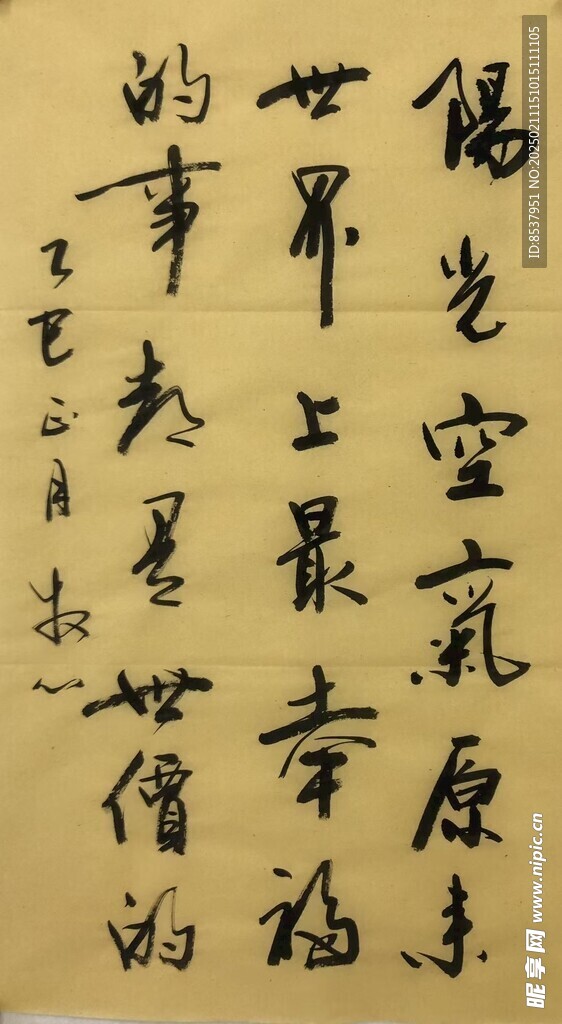 陽光空氣原来
世界上最幸福
的事都是無價的
乙巳正月 牧心
ID:8537951 NO:20250211151015111105
昵享网 www.nipic.cn